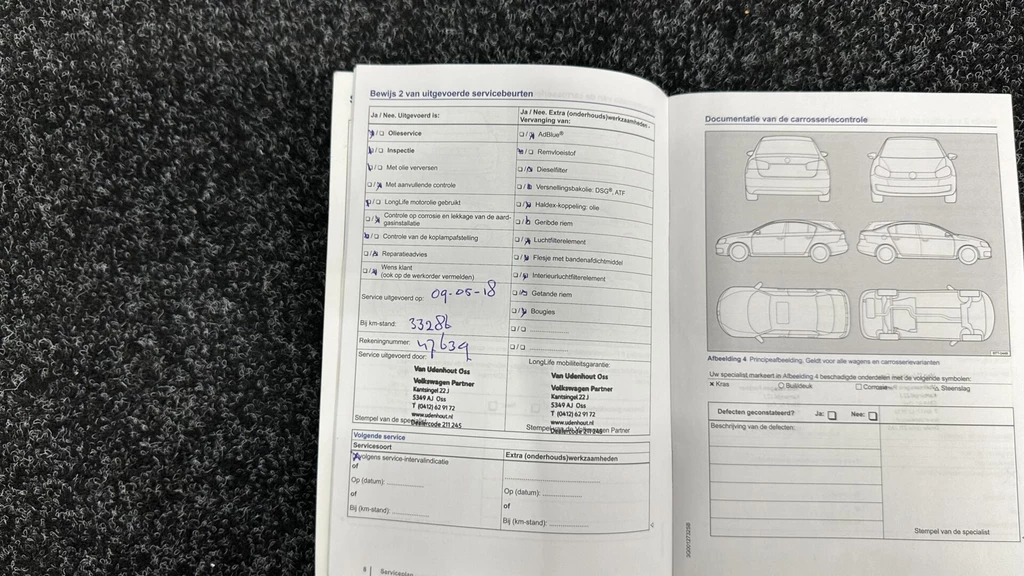 Bewijs 2 van uitgevoerde servicebeurten
Ja / Nee. Uitgevoerd is:
Olieservice
Inspectie
Met olie verversen
Met aanvullende controle
LongLife motorolie gebruikt
Controle op corrosie en lekkage van de aard-
gasinstallatie
Controle van de koplampafstelling
Reparatieadvies
Wens klant
(ook op de werkorder vermelden)
Service uitgevoerd op: 09-05-18
Bij km-stand: 33286
Rekeningnummer: 47639
Service uitgevoerd door:
Van Udenhout Oss
Volkswagen Partner
Kantsingel 22 J
5349 AJ Oss
T (0412) 62 91 72
www.udenhout.nl
Dealercode 211 245
Stempel van de specialist
Ja / Nee. Extra (onderhouds)werkzaamheden -
Vervanging van:
AdBlue®
Remvloeistof
Dieselfilter
Versnellingsbakolie: DSG®, ATF
Haldex-koppeling: olie
Geribde riem
Luchtfilterelement
Flesje met bandenafdichtmiddel
Interieurluchtfilterelement
Getande riem
Bougies
LongLife mobiliteitsgarantie:
Van Udenhout Oss
Volkswagen Partner
Kantsingel 22 J
5349 AJ Oss
T (0412) 62 91 72
www.udenhout.nl
Dealercode 211 245
Stempel van de Volkswagen Partner
Volgende service
Servicesoort
volgens service-intervalindicatie
of
Op (datum): ..............
of
Bij (km-stand): ..............
Extra (onderhouds)werkzaamheden
Op (datum): ..............
of
Bij (km-stand): ..............
8 | Serviceplan
Documentatie van de carrosseriecontrole
Afbeelding 4 Principeafbeelding. Geldt voor alle wagens en carrosserievarianten
Uw specialist markeert in Afbeelding 4 beschadigde onderdelen met de volgende symbolen:
× Kras ○ Buil/deuk □ Corrosie △ Steenslag
Defecten geconstateerd? Ja: Nee:
Beschrijving van de defecten:
Stempel van de specialist